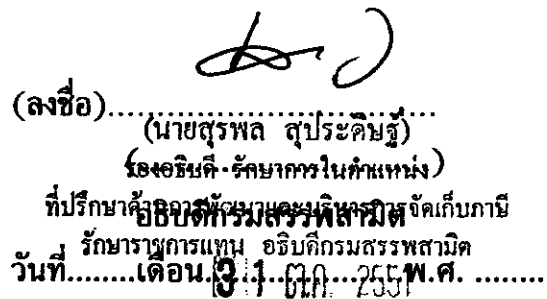 (ลงชื่อ)..................................
(นายสุรพล สุประดิษฐ์)
(รองอธิบดี รักษาการในตำแหน่ง)
ที่ปรึกษาด้านการพัฒนาและบริหารการจัดเก็บภาษี
อธิบดีกรมสรรพสามิต
รักษาราชการแทน อธิบดีกรมสรรพสามิต
วันที่........เดือน 31 ต.ค. 2551 พ.ศ. ........